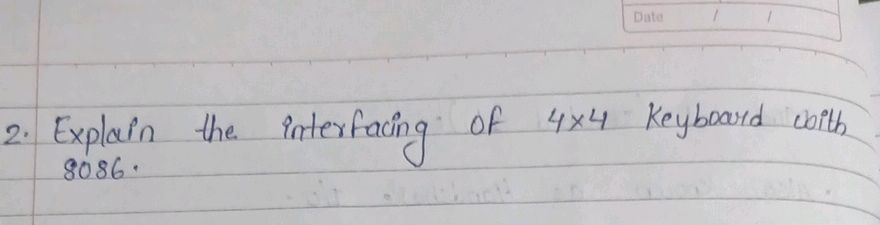 Date / /
2. Explain the interfacing of 4x4 Keyboard with
8086.